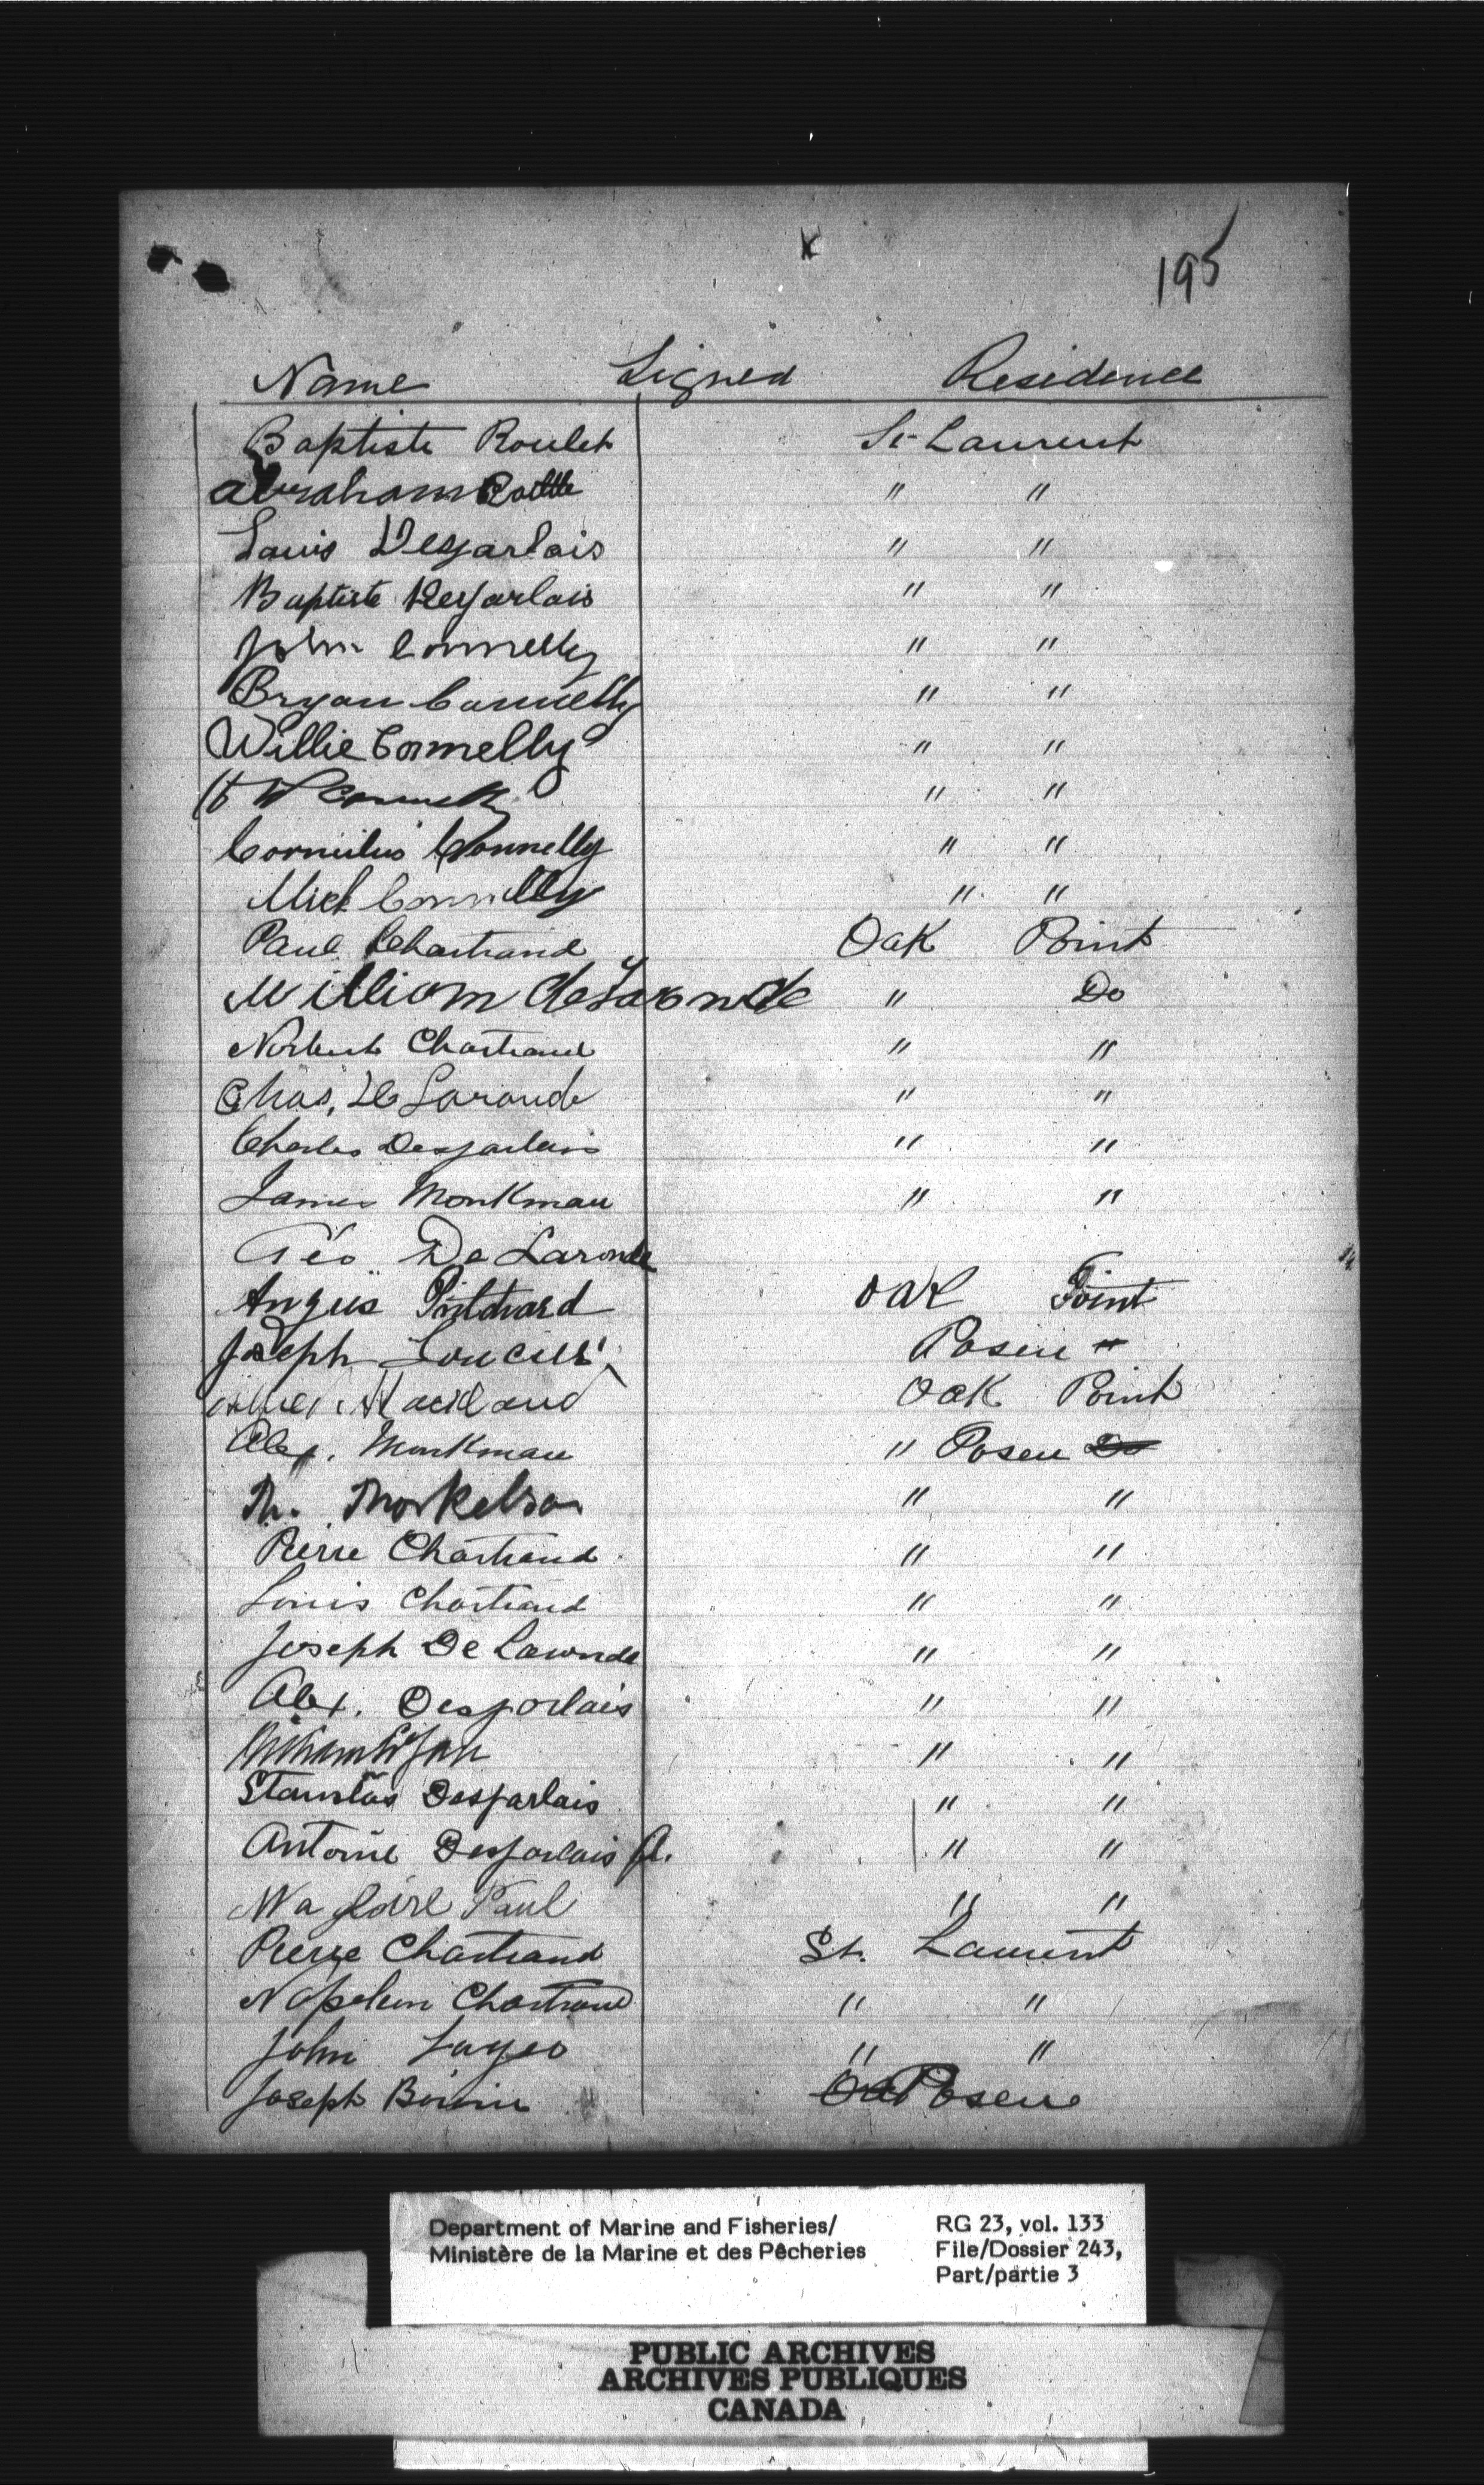 195
Name Signed Residence
Baptiste Roulet St Laurent
Abraham " "
Louis Desjarlais " "
Baptiste Desjarlais " "
John Connelly " "
Bryan Connelly " "
Willie Connelly " "
W Connelly " "
Cornelius Connelly " "
Mick Connelly " "
Paul Chartrand Oak Point
William deLaronde " Do
Norbert Chartrand " "
Chas. De Laronde " "
Charles Desjarlais " "
James Monkman " "
Géo. De Laronde
Angus Pritchard Oak Point
Joseph Posen "
Oak Point
Alex. Monkman " Posen Do
Th. Thorkelson " "
Pierre Chartrand " "
Louis Chartrand " "
Joseph De Lawnde " "
Alex. Desjarlais " "
" "
Stanislas Desjarlais " "
Antoine Desjarlais Jr. " "
Magloire Paul " "
Pierre Chartrand St. Laurent
Napoleon Chartrand " "
John " "
Joseph Boivin Posen
Department of Marine and Fisheries/ RG 23, vol. 133
Ministère de la Marine et des Pêcheries File/Dossier 243,
Part/partie 3
PUBLIC ARCHIVES
ARCHIVES PUBLIQUES
CANADA